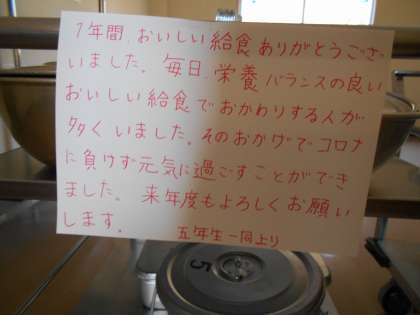 1年間、おいしい給食ありがとうござ
いました。毎日、栄養バランスの良い
おいしい給食でおかわりする人が
多くいました。そのおかげでコロナ
に負けず元気に過ごすことができ
ました。来年度もよろしくお願い
します。
五年生一同より
5